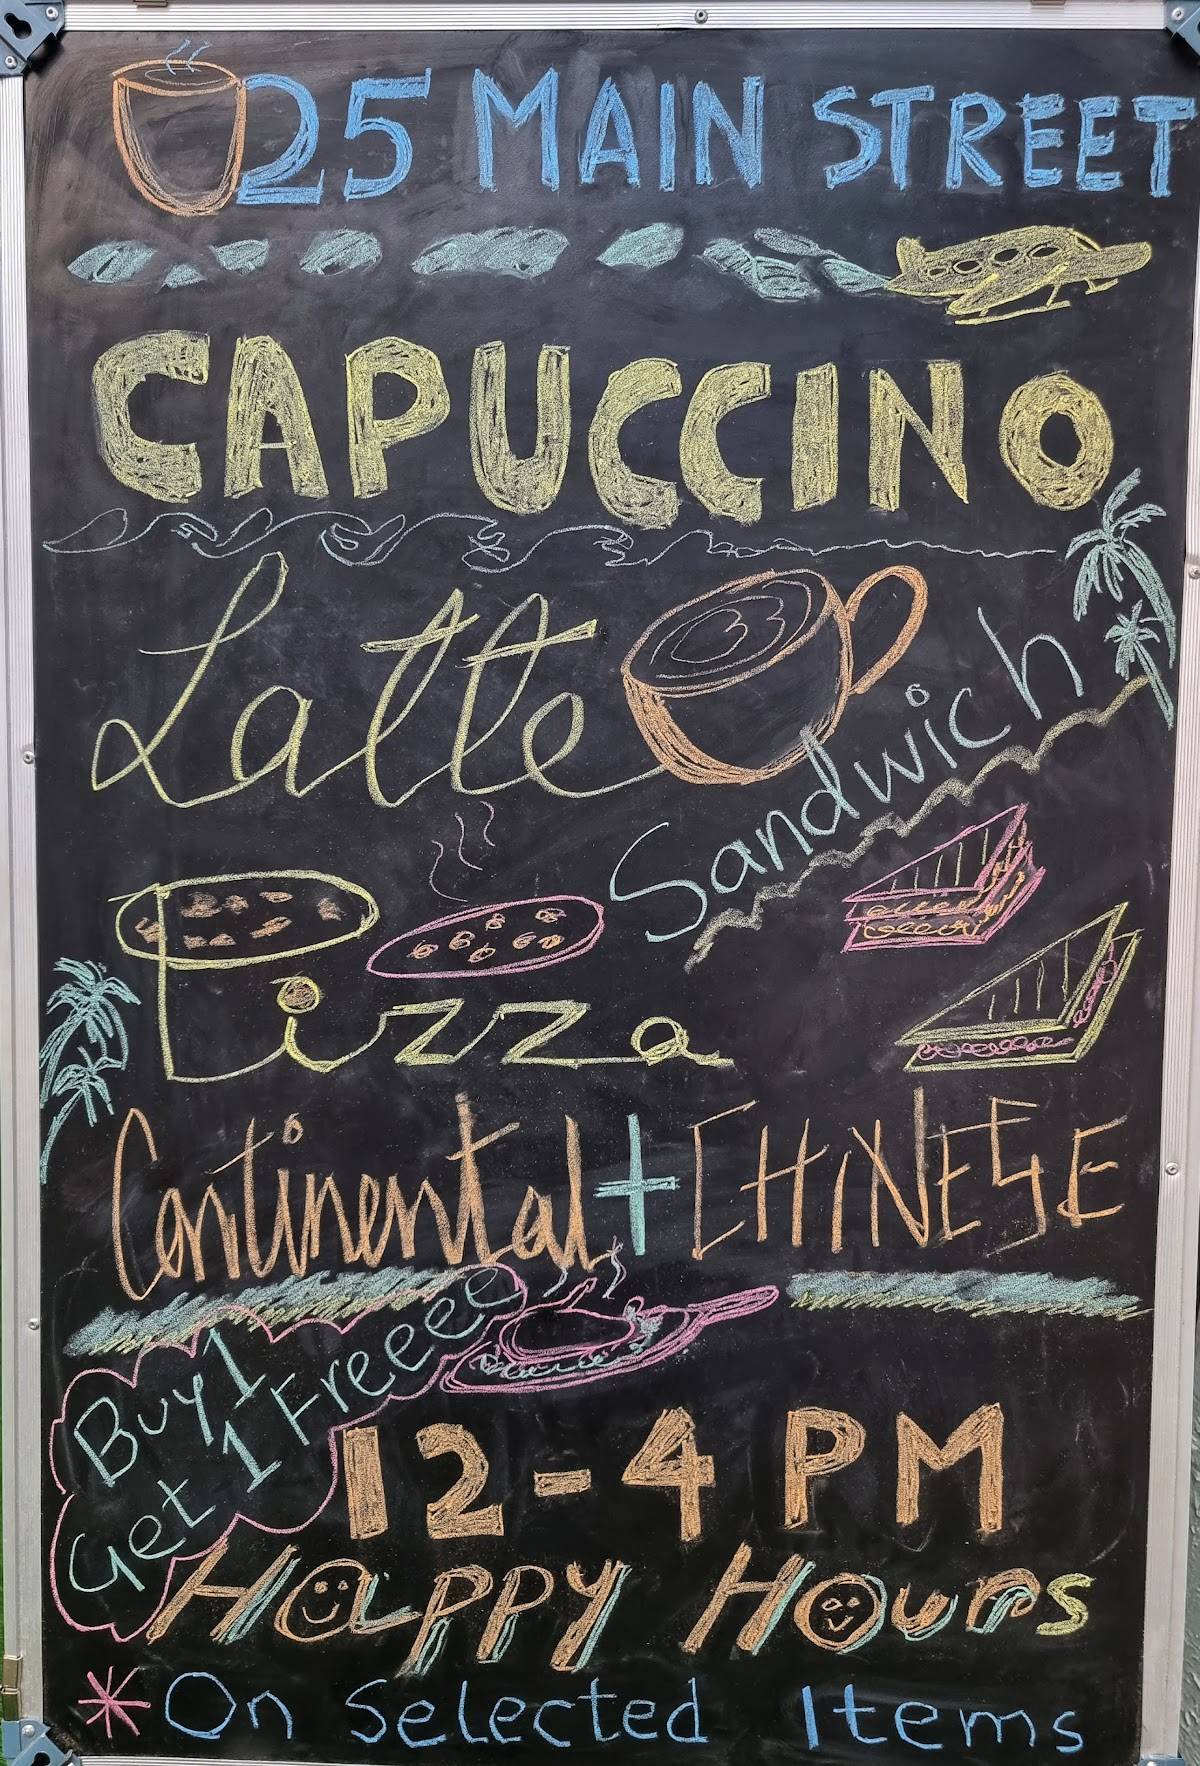 25 MAIN STREET
CAPUCCINO
Latte
Sandwich
Pizza
Continental + CHINESE
Buy 1
Get 1 Freeee
12-4 PM
Happy Hours
*On Selected Items